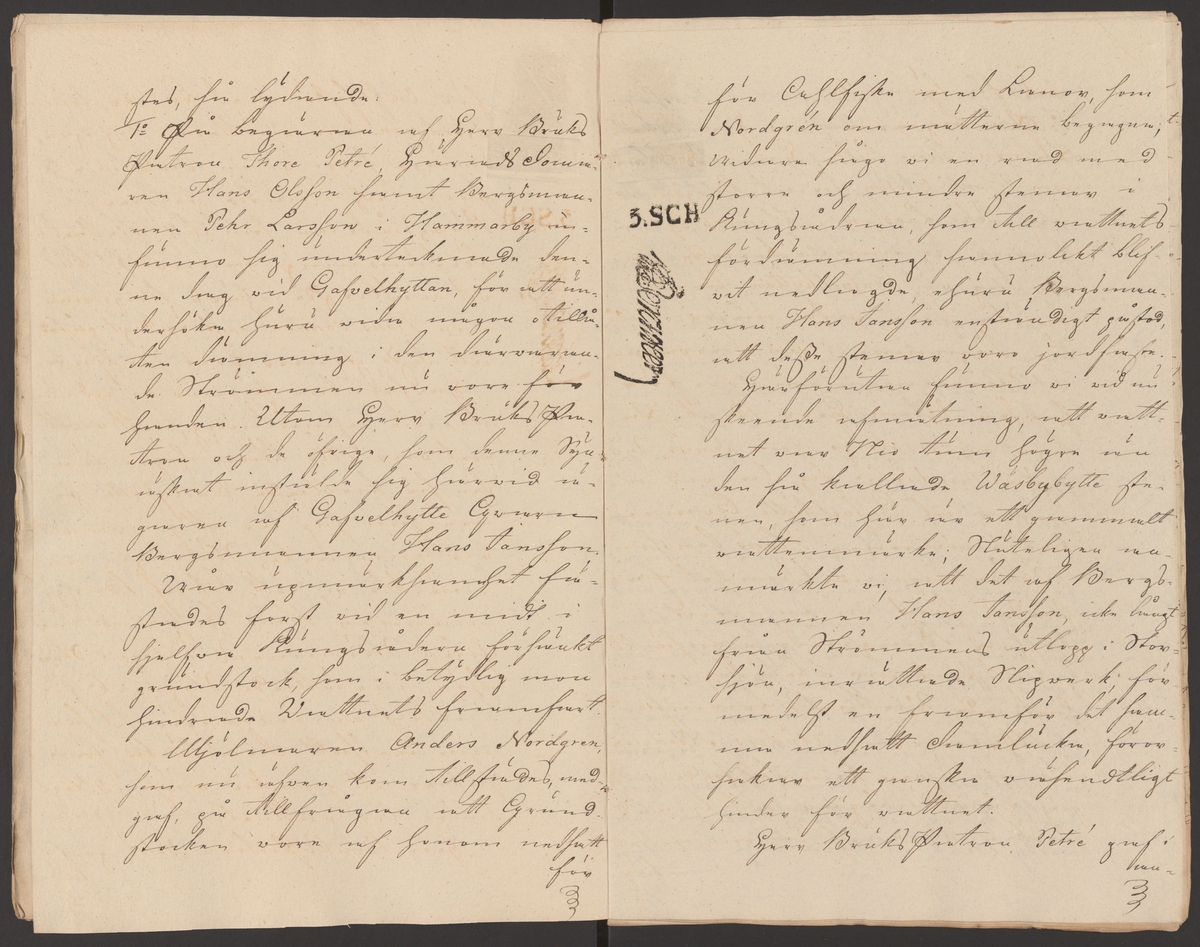 stes, så lydande:
1:o På begiäran af Herr Bruks
Patron Thore Petré, Härads Doma-
ren Hans Olsson samt Bergsman-
nen Pehr Larsson i Hammarby in-
funno sig undertecknade den-
ne dag vid Gafvelhyttan, för att un-
dersöka huru vida någon otillå-
ten dämning i den därvaran-
de Strömmen nu vore för
handen. Utom Herr Bruks Pa-
tron och de öfrige, som denne Syn
äskat instälde sig härvid ä-
garen af Gafvelhytte Qvarn
Bergsmannen Hans Jansson.
Wår upmärksamhet fä-
stades först vid en midt i
sjelfva Kungsådern försänkt
grundstock, som i betydlig mon
hindrade Vattnets framfart.
Mjölnaren Anders Nordgren,
som nu äfven kom tillstädes, med-
gaf, på tillfrågan att Grund
stocken vore af honom nedsatt
för
för Ahlfiske med Lanor, som
Nordgrén om nätterne begagna;
Widare sågo vi en rad med
större och mindre stenar i
Kungsådran, som till vattnets
fördämning sannolikt blif-
vit nedlagde, ehuru Bergsman-
nen Hans Jansson enständigt påstod,
att desse stenar voro jordfaste.
Härförutan funno vi vid nu
skeende afmätning, att vatt-
net var Nio tum högre än
den så kallade Wäsbybytte ste-
nen, som här är ett gammalt
vattenmärke; Sluteligen an-
märkte vi, att det af Bergs-
mannen Hans Jansson, icke långt
från Strömmens utlopp i Stor-
sjön, inrättade Slipwerk, för
medelst en framför det sam-
ma nedsatt Damlucka, föror-
sakar ett ganska väsendtligt
hinder för vattnet.
Herr Bruks Patron Petré gaf
an-
3.SCH